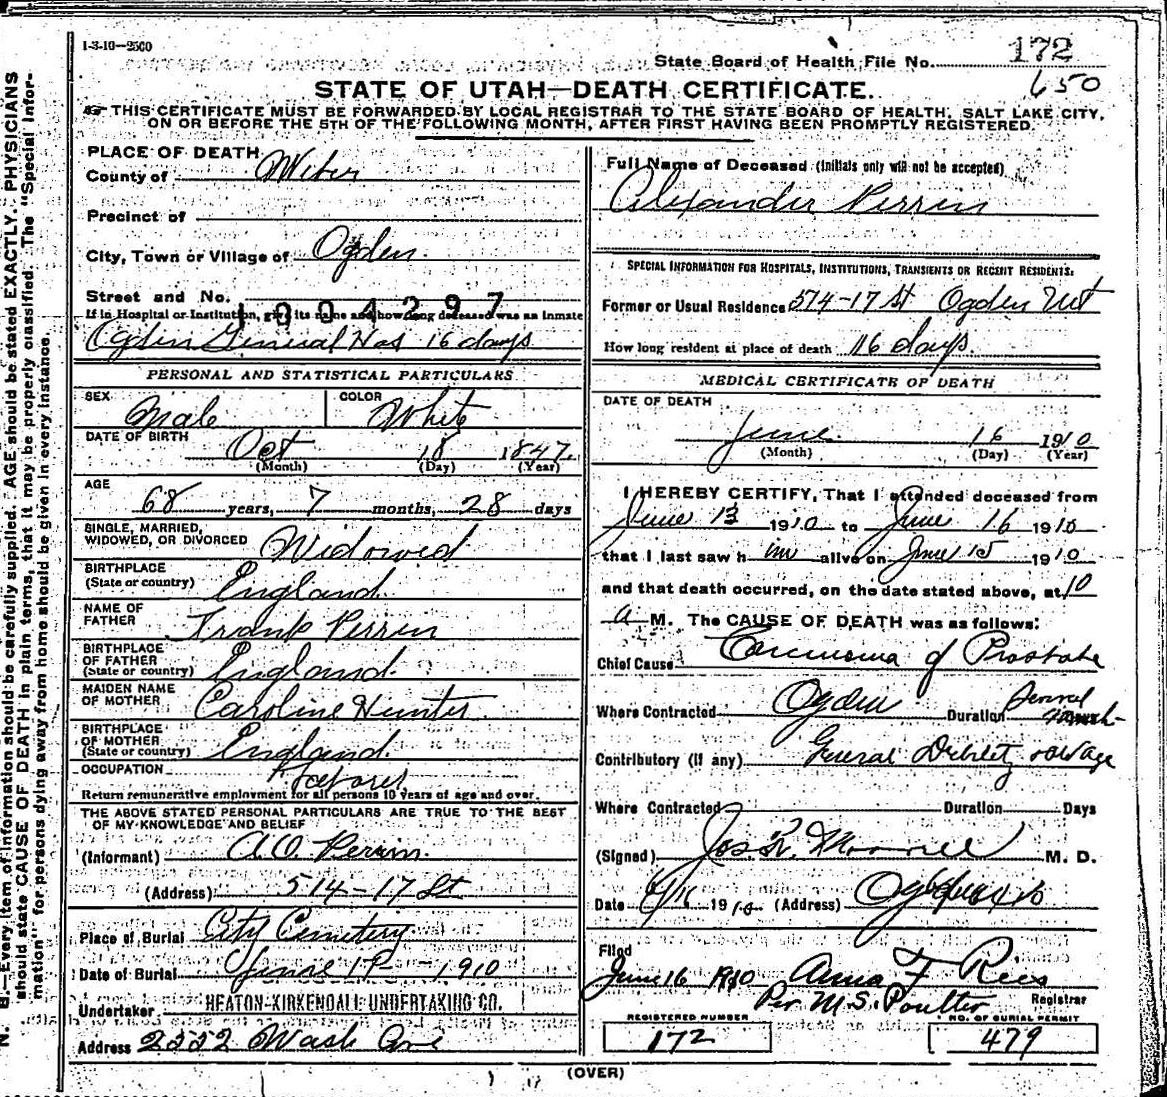 1-3-10—2500
State Board of Health File No. 172
650
STATE OF UTAH—DEATH CERTIFICATE.
THIS CERTIFICATE MUST BE FORWARDED BY LOCAL REGISTRAR TO THE STATE BOARD OF HEALTH, SALT LAKE CITY,
ON OR BEFORE THE 5TH OF THE FOLLOWING MONTH, AFTER FIRST HAVING BEEN PROMPTLY REGISTERED.
PLACE OF DEATH
County of Weber
Precinct of
City, Town or Village of Ogden
Street and No.
1004297
If in Hospital or Institution, give its name and how long deceased was an inmate
Ogden General Hos 16 days
PERSONAL AND STATISTICAL PARTICULARS
SEX Male COLOR White
DATE OF BIRTH Oct 18 1847
(Month) (Day) (Year)
AGE
68 years, 7 months, 28 days
SINGLE, MARRIED,
WIDOWED, OR DIVORCED Widowed
BIRTHPLACE
(State or country) England
NAME OF
FATHER Frank Perrin
BIRTHPLACE
OF FATHER
(State or country) England
MAIDEN NAME
OF MOTHER Caroline Hunter
BIRTHPLACE
OF MOTHER
(State or country) England
OCCUPATION Laborer
Return remunerative employment for all persons 10 years of age and over.
THE ABOVE STATED PERSONAL PARTICULARS ARE TRUE TO THE BEST
OF MY KNOWLEDGE AND BELIEF
(Informant) A.O. Perrin
(Address) 514-17 St
Place of Burial City Cemetery
Date of Burial June 19 1910
Undertaker HEATON-KIRKENDALL UNDERTAKING CO.
Address 2552 Wash Ave
Full Name of Deceased (Initials only will not be accepted)
Alexander Perrin
SPECIAL INFORMATION FOR HOSPITALS, INSTITUTIONS, TRANSIENTS OR RECENT RESIDENTS.
Former or Usual Residence 574-17 St Ogden Ut
How long resident at place of death 16 days.
MEDICAL CERTIFICATE OF DEATH
DATE OF DEATH
June 16 1910
(Month) (Day) (Year)
I HEREBY CERTIFY, That I attended deceased from
June 13 1910 to June 16 1910
that I last saw him alive on June 15 1910
and that death occurred, on the date stated above, at 10
a M. The CAUSE OF DEATH was as follows:
Chief Cause Carcinoma of Prostate
Where Contracted Ogden Duration
Contributory (if any) General Debility old age
Where Contracted Duration Days
(Signed) Jos. R. Morrell M. D.
Date 6/16 1910 (Address) Ogden
Filed
June 16 1910 Anna F Rees
Per M.S. Poulter Registrar
REGISTERED NUMBER
172
NO. OF BURIAL PERMIT
479
(OVER)
N. B.—Every item of information should be carefully supplied. AGE should be stated EXACTLY. PHYSICIANS
should state CAUSE OF DEATH in plain terms, that it may be properly classified. The "Special Infor-
mation" for persons dying away from home should be given in every instance.